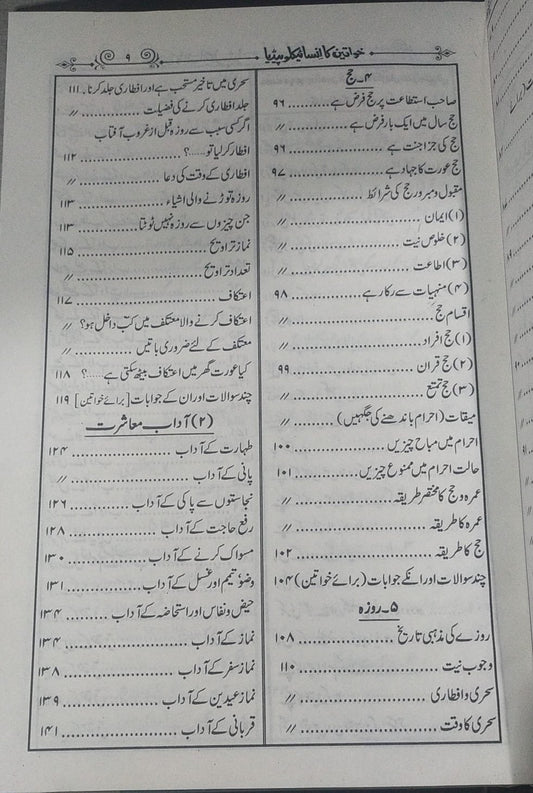 خواتین کا انسائیکلو پیڈیا
۹
۴۔حج
صاحب استطاعت پر حج فرض ہے .......... ۹۶
حج سال میں ایک بار فرض ہے .......... //
حج کی جزا جنت ہے .......... ۹۶
حج عورت کا جہاد ہے .......... ۹۷
مقبول و مبرور حج کی شرائط .......... //
(۱) ایمان .......... //
(۲) خلوص نیت .......... //
(۳) اطاعت .......... //
(۴) منہیات سے رکا رہے .......... ۹۸
اقسام حج .......... //
(۱) حج افراد .......... //
(۲) حج قران .......... ۹۹
(۳) حج تمتع .......... //
میقات (احرام باندھنے کی جگہیں) .......... //
احرام میں مباح چیزیں .......... ۱۰۰
حالت احرام میں ممنوع چیزیں .......... ۱۰۱
عمرہ و حج کا مختصر طریقہ .......... //
عمرہ کا طریقہ .......... //
حج کا طریقہ .......... ۱۰۲
چند سوالات اور انکے جوابات (برائے خواتین) ۱۰۴
۵۔روزہ
روزے کی مذہبی تاریخ .......... ۱۰۸
وجوب نیت .......... ۱۱۰
سحری و افطاری .......... //
سحری کا وقت .......... //
سحری میں تاخیر مستحب ہے اور افطاری جلد کرنا . ۱۱۱
جلد افطاری کرنے کی فضیلت .......... //
اگر کسی سبب سے روزہ قبل از غروب آفتاب
افطار کر لیا تو .....؟ .......... ۱۱۲
افطاری کے وقت کی دعا .......... //
روزہ توڑنے والی اشیاء .......... ۱۱۳
جن چیزوں سے روزہ نہیں ٹوٹتا .......... ۱۱۳
نماز تراویح .......... ۱۱۵
تعداد تراویح .......... //
اعتکاف .......... ۱۱۷
اعتکاف کرنے والا معتکف میں کب داخل ہو؟ //
معتکف کے لئے ضروری باتیں .......... //
کیا عورت گھر میں اعتکاف بیٹھ سکتی ہے .....؟ ۱۱۸
چند سوالات اور ان کے جوابات [برائے خواتین] ۱۱۹
(۲) آداب معاشرت
طہارت کے آداب .......... ۱۲۴
پانی کے آداب .......... //
نجاستوں سے پاکی کے آداب .......... ۱۲۶
رفع حاجت کے آداب .......... ۱۲۸
مسواک کرنے کے آداب .......... ۱۳۰
وضو، تیمم اور غسل کے آداب .......... ۱۳۱
حیض و نفاس اور استحاضہ کے آداب .......... ۱۳۴
نماز کے آداب .......... ۱۳۴
نماز سفر کے آداب .......... ۱۳۸
نماز عیدین کے آداب .......... ۱۳۹
قربانی کے آداب .......... ۱۴۱